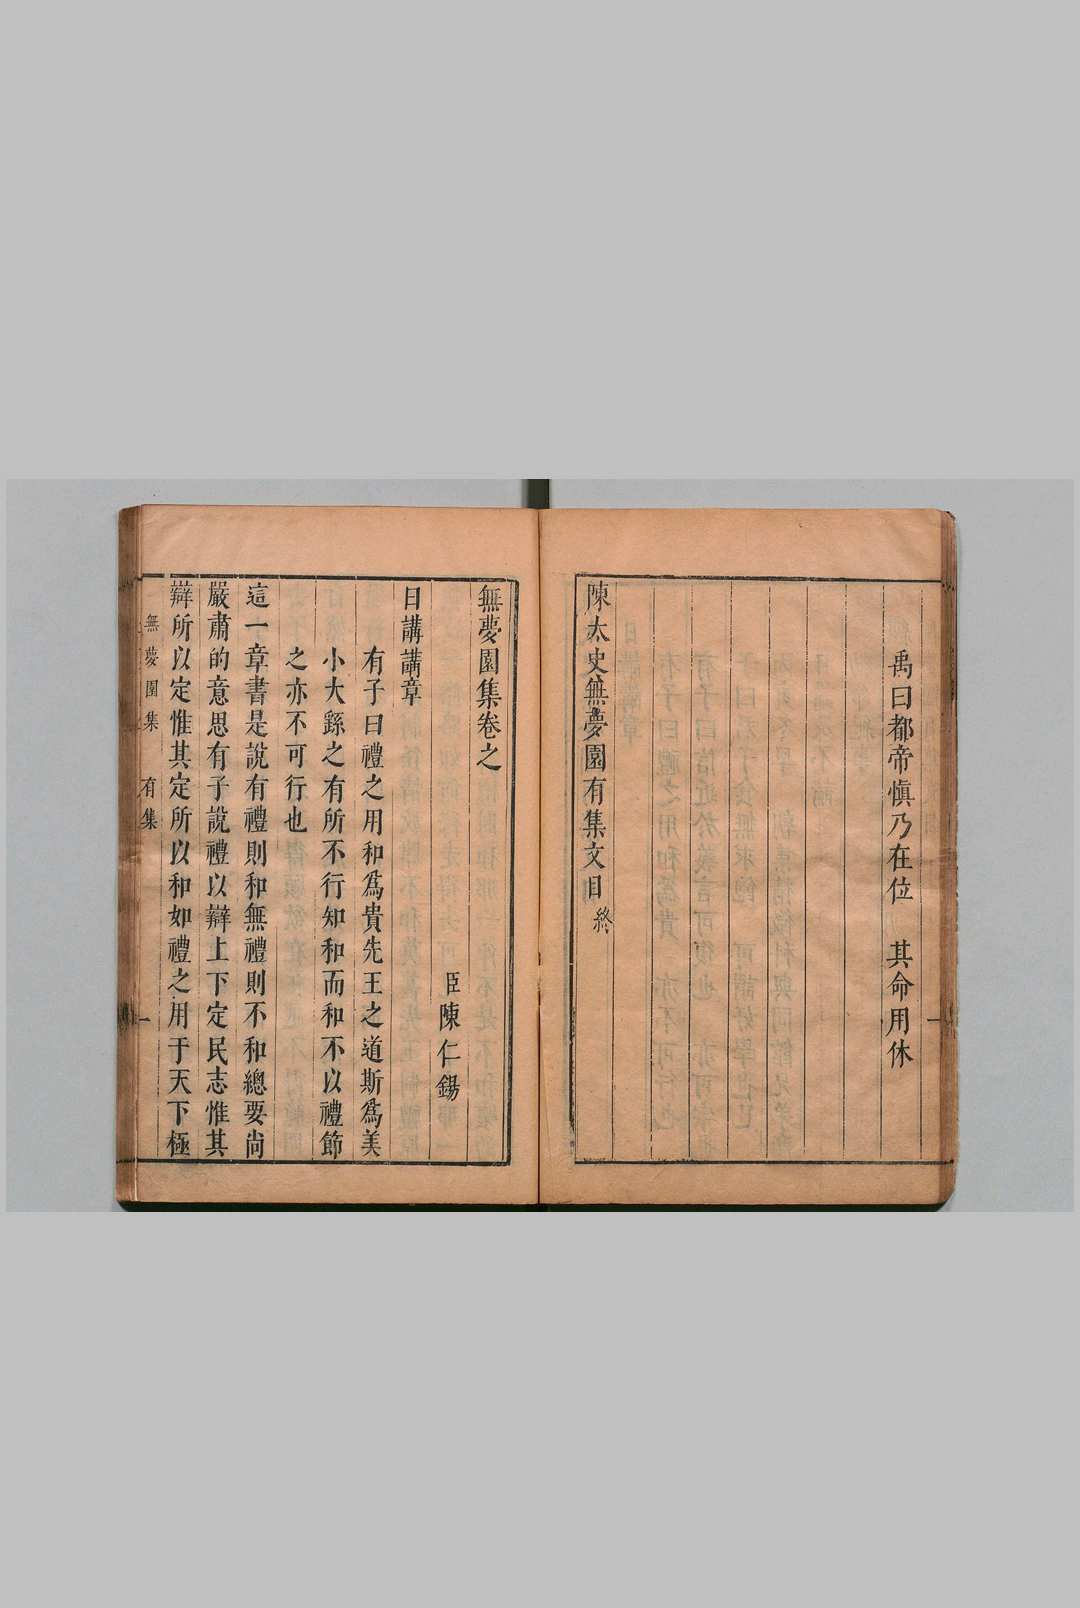 禹曰都帝慎乃在位　其命用休
陳太史無夢園有集文目終
無夢園集卷之
臣陳仁錫
日講講章
有子曰禮之用和為貴先王之道斯為美
小大繇之有所不行知和而和不以禮節
之亦不可行也
這一章書是說有禮則和無禮則不和總要尚
嚴肅的意思有子說禮以辯上下定民志惟其
辯所以定惟其定所以和如禮之用于天下極
無夢園集　有集　一